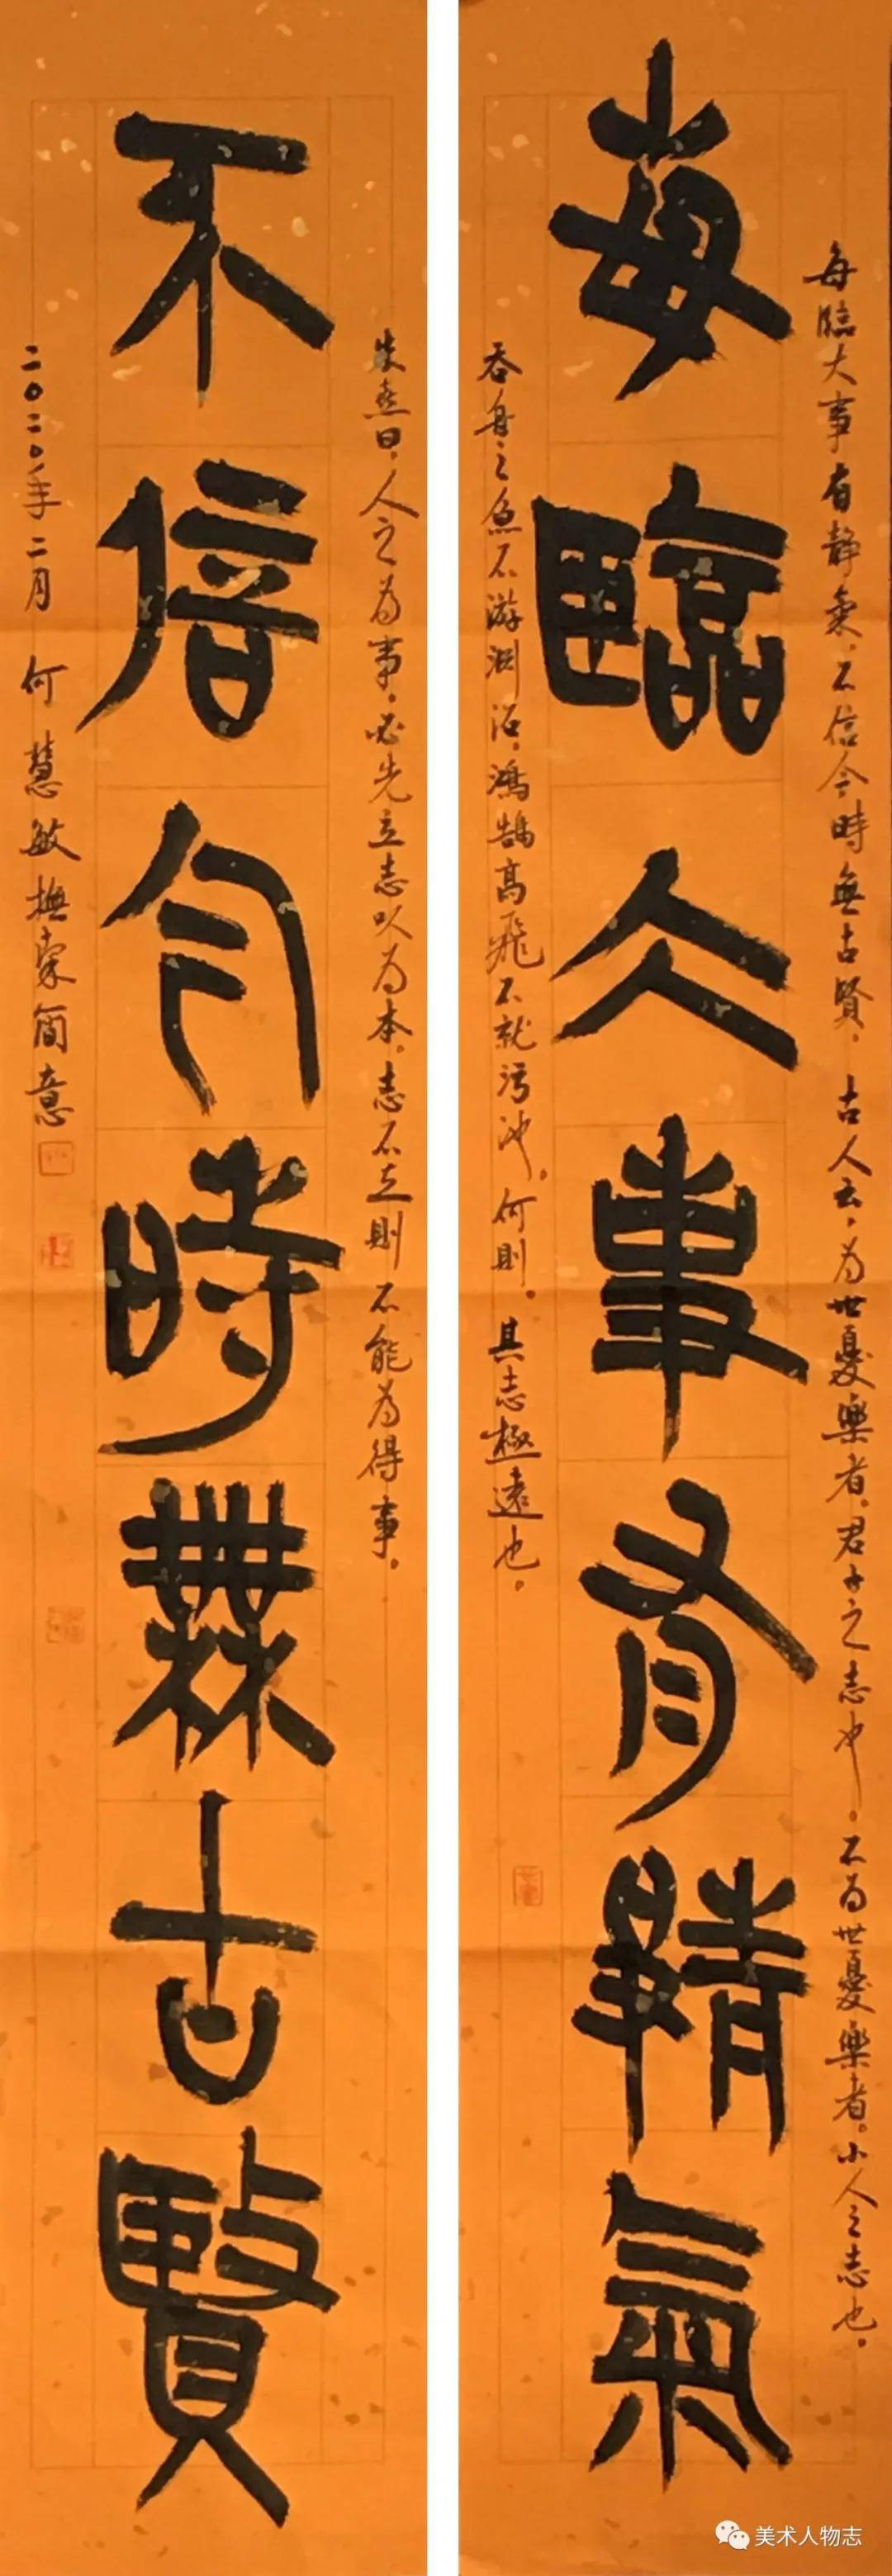 每臨大事有静氣
不信今時無古賢
每臨大事有静氣。不信今時無古賢。古人云，为世憂樂者。君子之志也。不为世憂樂者。小人之志也。
吞舟之魚不游淵沼。鴻鵠高飛不就污池。何則。其志極遠也。
朱熹曰，人之为事，必先立志以为本。志不立則不能为得事。
二〇二〇年二月 何慧敏撫 簡意
美术人物志